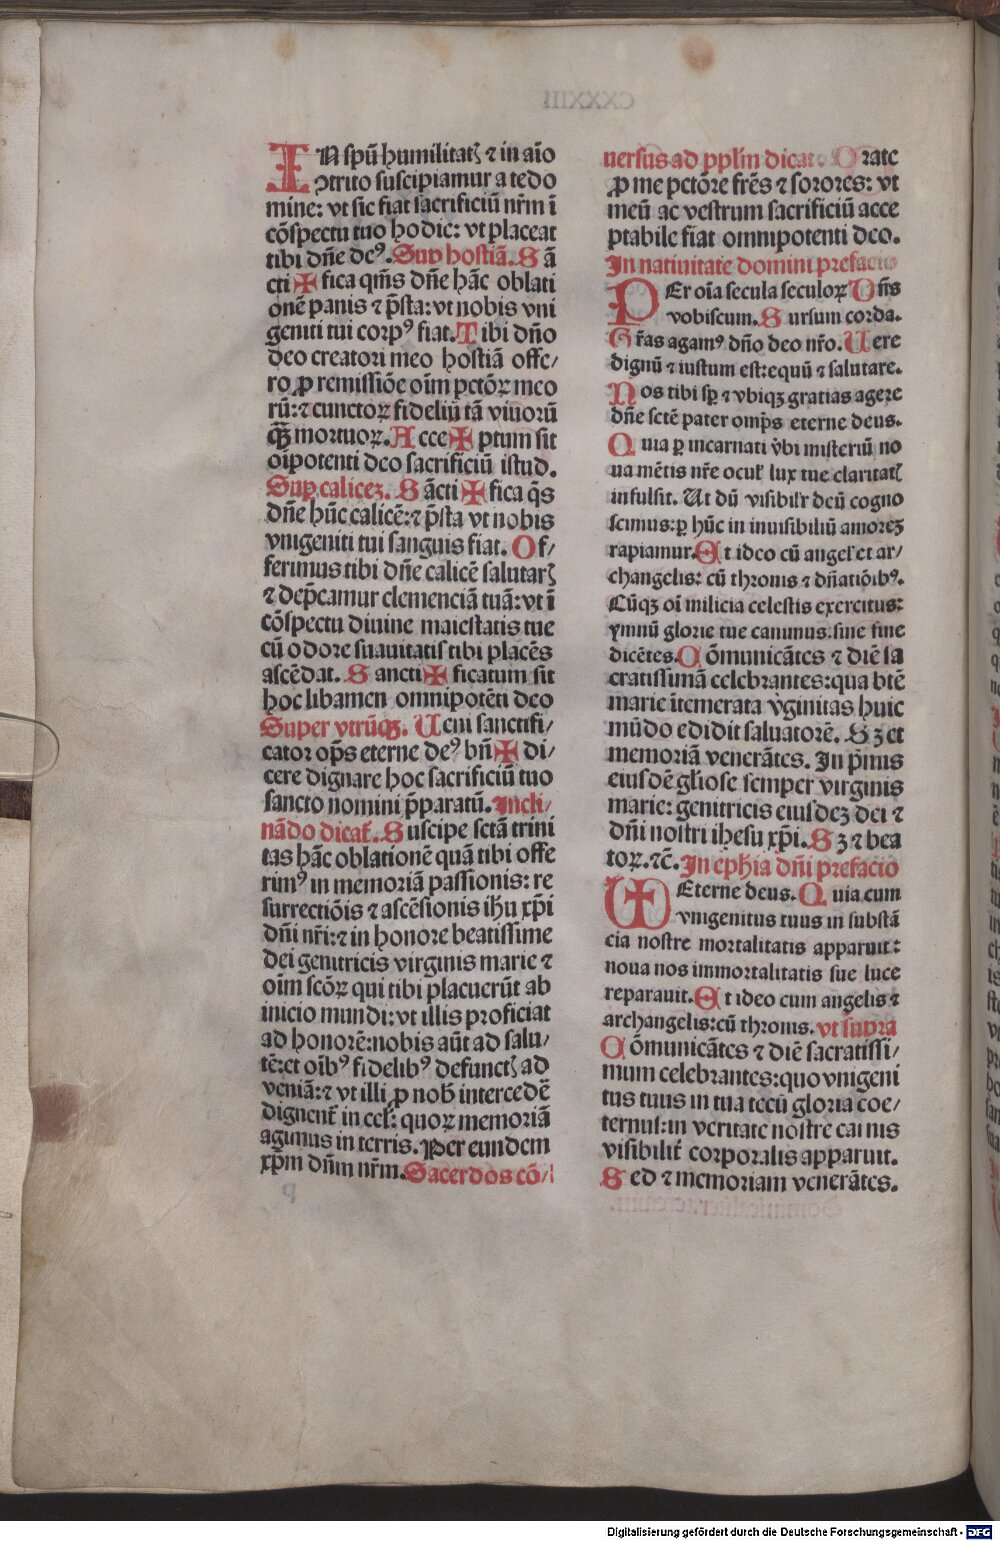 IN spũ humilitatꝭ ⁊ in aĩo
ꝯtrito suscipiamur a te do
mine: vt sic fiat sacrificiũ nr̃m ĩ
cõspectu tuo hodie: vt placeat
tibi dñe deꝰ. Sup hostiã. Sã
cti ✠ fica qm̃s dñe hãc oblati
onẽ panis ⁊ p̃sta: vt nobis vni
geniti tui corpꝰ fiat. Tibi dño
deo creatori meo hostiã offe/
ro ꝓ remissiõe oĩm pctõꝝ meo
rũ: ⁊ cunctoꝝ fideliũ tã viuorũ
q̃ꝫ mortuoꝝ. Acce ✠ ptum sit
oĩpotenti deo sacrificiũ istud.
Suꝑ caliceꝫ. Sãcti ✠ fica q̃s
dñe hũc calicẽ: ⁊ p̃sta vt nobis
vnigeniti tui sanguis fiat. Of/
ferimus tibi dñe calicẽ salutarꝭ
⁊ dep̃camur clemenciã tuã: vt ĩ
cõspectu diuine maiestatis tue
cũ odore suauitatis tibi placẽs
ascẽdat. Sancti ✠ ficatum sit
hoc libamen omnipotẽti deo
Super vtrũqꝫ. Ueni sanctifi/
cator op̃s eterne deꝰ bñ ✠ di/
cere dignare hoc sacrificiũ tuo
sancto nomini p̃paratũ. Incli/
nãdo dicat̃. Suscipe sctã trini
tas hãc oblationẽ quã tibi offe
rimꝰ in memoriã passionis: re
surrectiõis ⁊ ascẽsionis ihũ xp̃i
dñi nr̃i: ⁊ in honore beatissime
dei genitricis virginis marie ⁊
oĩm scõꝝ qui tibi placuerũt ab
inicio mundi: vt illis proficiat
ad honorẽ: nobis aũt ad salu/
tẽ: et oĩbꝰ fidelibꝰ defunctꝭ ad
veniã: ⁊ vt illi ꝓ nob̃ intercedẽ
dignent̃ in cel̃: quoꝝ memoriã
agimus in terris. Per eundem
xp̃m dñm nr̃m. Sacerdos cõ/
uersus ad ppl̃m dicat. Orate
ꝓ me pctõre fr̃es ⁊ sorores: vt
meũ ac vestrum sacrificiũ acce
ptabile fiat omnipotenti deo.
In natiuitate domini prefacio
PEr oĩa secula seculoꝝ Dñs
vobiscum. Sursum corda.
Gr̃as agamꝰ dño deo nr̃o. Uere
dignũ ⁊ iustum est: equũ ⁊ salutare.
Nos tibi sp̃ ⁊ vbiqꝫ gratias agere
dñe sctẽ pater omp̃s eterne deus.
Quia ꝑ incarnati v̾bi misteriũ no
ua mẽtis nr̃e ocul̃ lux tue claritatꝭ
infulsit. Ut dũ visibilr̃ deũ cogno
scimus: ꝑ hũc in inuisibiliũ amoreꝫ
rapiamur. Et ideo cũ angel̃ et ar/
changelis: cũ thronis ⁊ dñatiõibꝰ.
Cũqꝫ oĩ milicia celestis exercitus:
ymnũ glorie tue canimus. sine fine
dicẽtes. Cõmunicãtes ⁊ diẽ sa
cratissimã celebrantes: qua btẽ
marie ĩtemerata v̾ginitas huic
mũdo edidit saluatorẽ. Sꝫ et
memoriã venerãtes. In p̃mis
eiusdẽ gl̃iose semper virginis
marie: genitricis eiusdeꝫ dei ⁊
dñi nostri ihesu xp̃i. Sꝫ ⁊ bea
toꝝ. ⁊c̃. In eph̃ia dñi prefacio
ETerne deus. Quia cum
vnigenitus tuus in substã
cia nostre mortalitatis apparuit:
noua nos immortalitatis sue luce
reparauit. Et ideo cum angelis ⁊
archangelis: cũ thronis. vt supra
Cõmunicãtes ⁊ diẽ sacratissi/
mum celebrantes: quo vnigeni
tus tuus in tua tecũ gloria coe/
ternus: in veritate nostre carnis
visibilit̃ corporalis apparuit.
Sed ⁊ memoriam venerãtes.
Digitalisierung gefördert durch die Deutsche Forschungsgemeinschaft - DFG